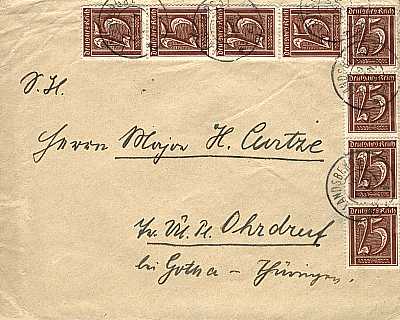 Deutsches Reich 25
Deutsches Reich 25
Deutsches Reich 25
Deutsches Reich 25
Deutsches Reich 25
Deutsches Reich 25
Deutsches Reich 25
Deutsches Reich 25
LANDSBE
S. H.
Herrn Major H. Curtze
Ohrdruf
bei Gotha – Thüringen.